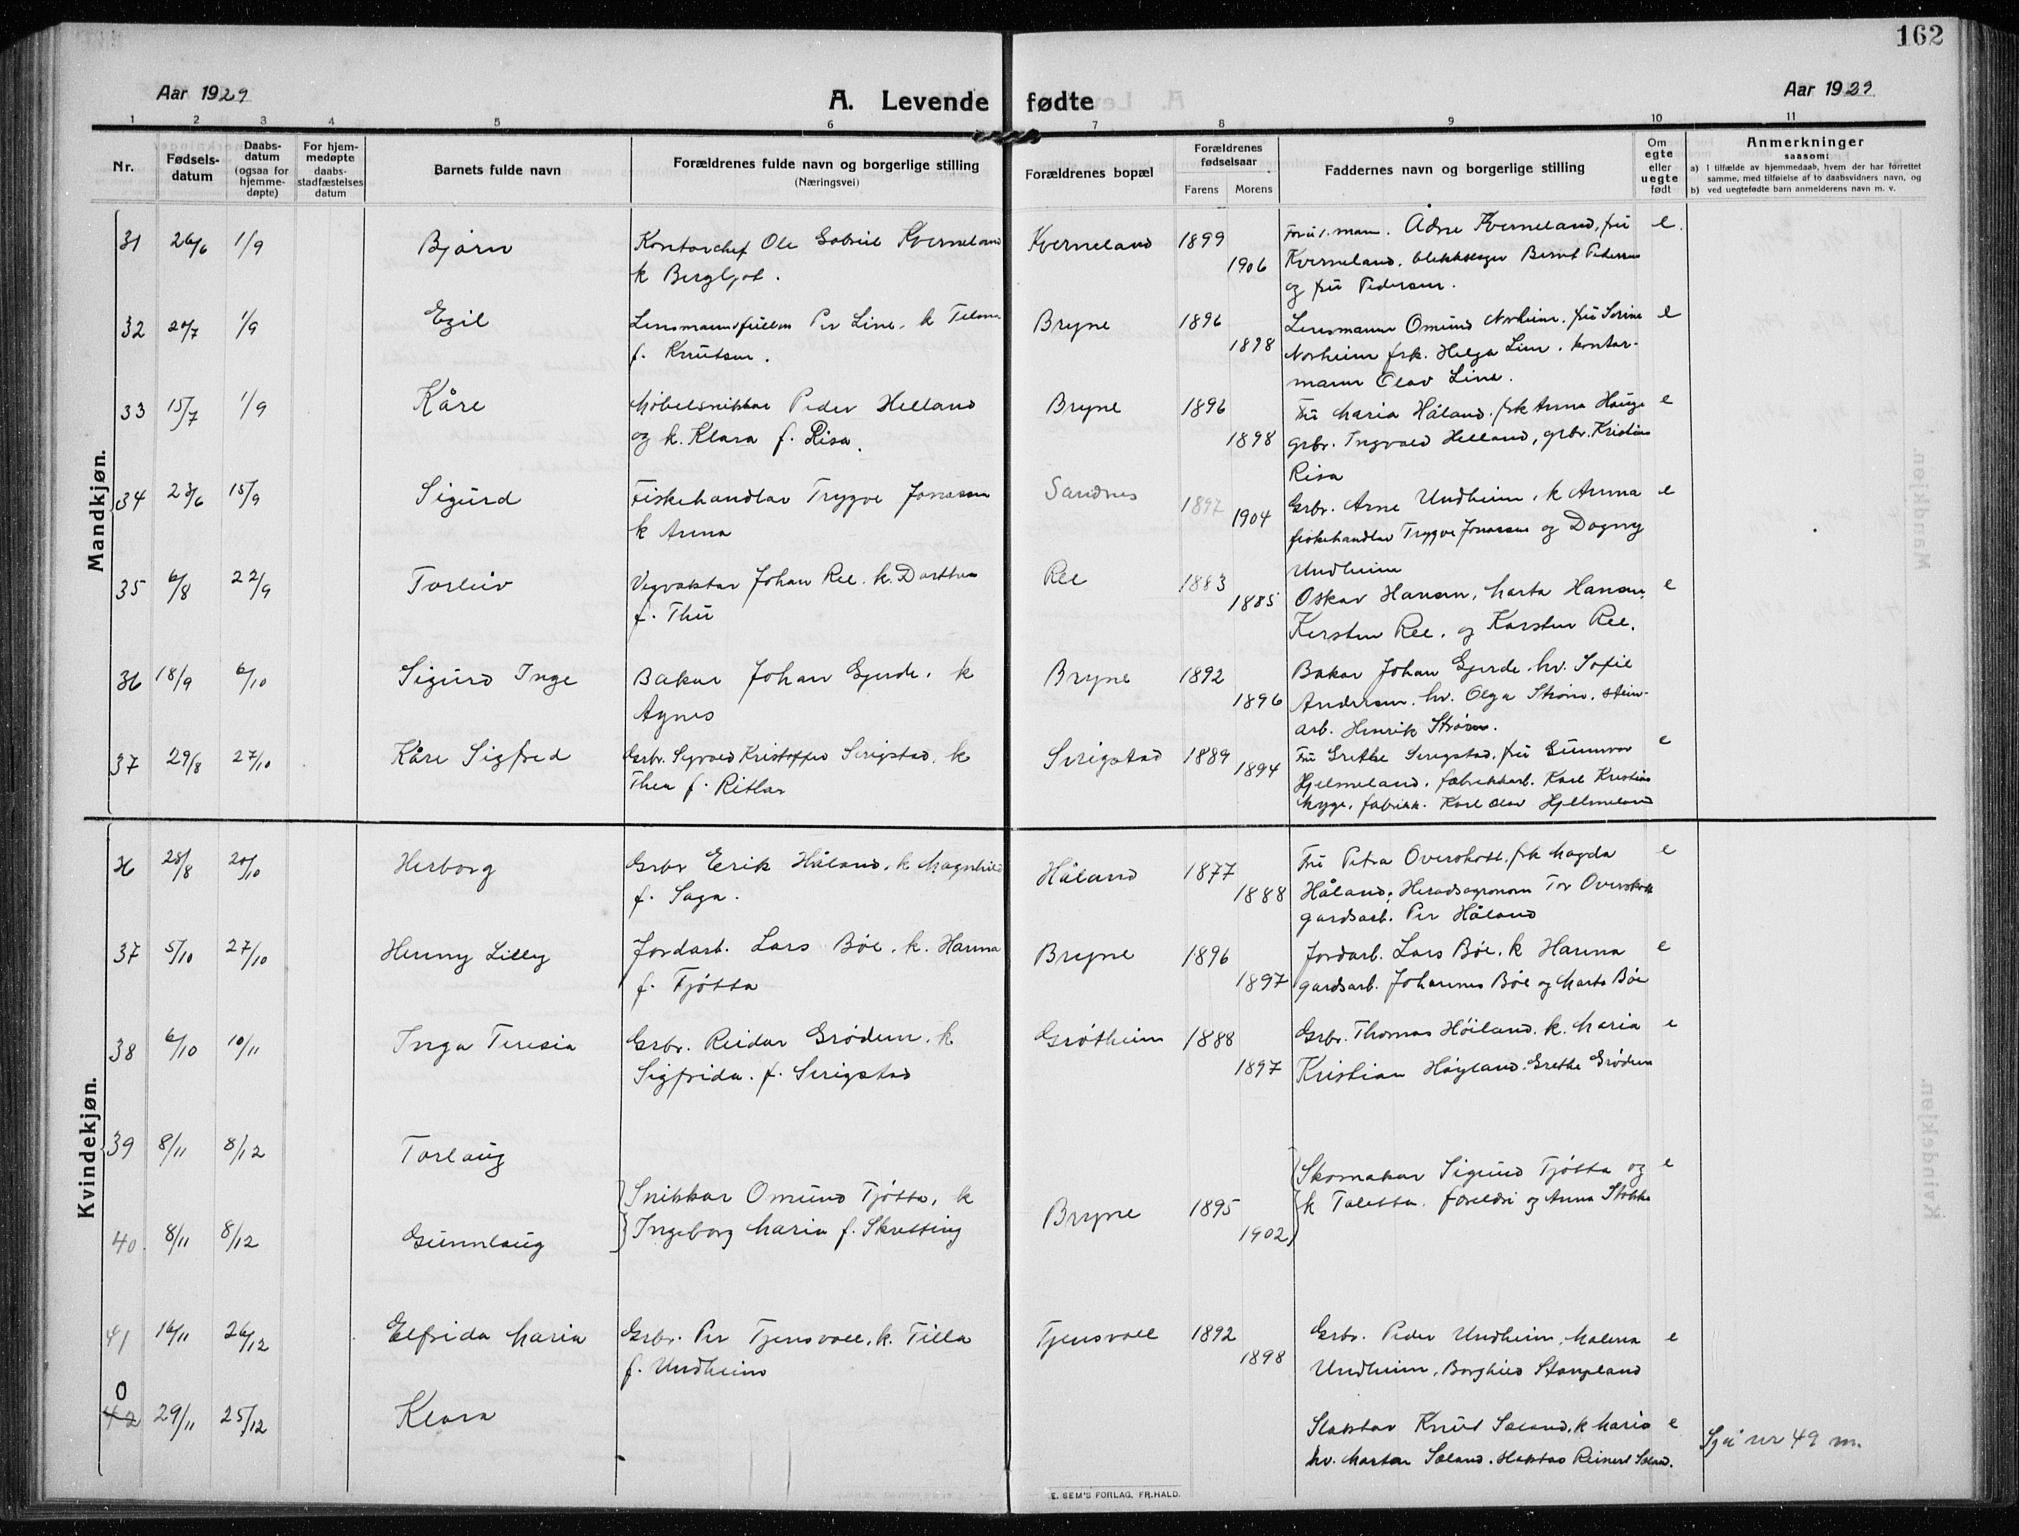 162
Aar 1929
A. Levende fødte
Aar 1929
1 2 3 4 5 6 7 8 9 10 11
Nr.
Fødsels-
datum
Daabs-
datum
(ogsaa for
hjemme-
døpte)
For hjem-
medøpte
daabs-
stadfæstelses
datum
Barnets fulde navn
Forældrenes fulde navn og borgerlige stilling
(Næringsvei)
Forældrenes bopæl
Forældrenes
fødselsaar
Farens Morens
Faddernes navn og borgerlige stilling
Om
egte
eller
uegte
født
Anmerkninger
saasom:
a) I tilfælde av hjemmedaab, hvem der har forrettet
samme, med tilføielse af to daabsvidners navn, og
b) ved uegtefødte barn anmelderens navn m. v.
Mandkjøn.
31 26/6 1/9 Bjørn
Kontorchef Ole Gabriel Kverneland
k Bergljot.
Kverneland 1899
1906
Ådne Kverneland, frú e.
Kverneland. Bernt Pedersen
og frú Pedersen.
32 20/7 1/9 Egil
Lensmannsfullm Per Line. k Telma
f. Knútsen.
Bryne 1896
1898
Lensmann Omúnd Norheim. frú Serine e
Norheim frk. Helga Line. kontor-
mann Olav Line.
33 15/7 1/9 Kåre
Møbelsnikkar Peder Helland
og k. Klara f. Risa.
Bryne 1896
1898
Frú Maria Håland. frk Anna Hauge e
grbr. Ingvald Helland, grbr. Kristian
Risa
34 23/6 15/9 Sigúrd
Fiskehandlar Trygve Jonassen
k Anna
Sandnes 1897
1904
Grbr. Arne Undheim. k Anna e
fiskehandlar Trygve Jonassen og Dagny
Undheim
35 6/8 22/9 Torleiv
Vegvaktar Johan Ree. k. Dorthea
f. Thú
Ree 1883
1885
Oskar Hansen, Marta Hansen, e
Kersten Ree. og Karsten Ree.
36 18/9 6/10 Sigúrd Inge
Bakar Johan Gjerde. k
Agnes
Bryne 1892
1896
Bakar Johan Gjerde. hv. Sofie
Andersen. hv. Olga Strøm. stein-
arb. Henrik Strøm.
37 29/8 27/10 Kåre Sigfred
Grbr. Sigvald Kristoffer Serigstad. k
Thea f. Ritlar
Serigstad 1889
1894
Frú Grethe Serigstad, frú Gúnnvor e
Hjelmeland. fabrikkarb. Karl Kristian
fabrikk. Karl Olav Hjellmeland
Kvindekjøn.
36 28/8 20/10 Herborg
Grbr Erik Håland. k Magnhild
f. Saga.
Håland 1877
1888
Frú Petra Overskott. frk Magda e
Håland; Heradsagronom Tor Overskott
gardsarb. Per Håland
37 5/10 27/10 Henny Lilly
Jordarb. Lars Bøe. k. Hanna
f. Tjøtta
Bryne 1896
1897
Jordarb. Lars Bøe. k Hanna e
gardsarb. Johannes Bøe og Marta Bøe
38 6/10 10/11 Inga Teresia
Grbr. Reidar Grødem. k
Sigfrida. f. Serigstad
Grøtheim 1888
1897
Grbr. Thomas Höiland. k. Maria e
Kristian Høyland. Grethe Grødem
39 8/11 8/12 Torlaúg
Snikkar Omúnd Tjøtta, k
Ingeborg Maria f. Skretting
40. 8/11 8/12 Gúnnlaúg
Bryne 1895
1902
Skomakar Sigúrd Tjøtta og e
k Taletta. foreldri og Anna Stokka
41 16/11 26/12 Elfrida Maria
Grbr. Per Tjensvoll. k. Tilla
f. Undheim
Tjensvoll 1892
1898
Grbr. Peder Undheim. Malena e
Undheim. Borghild Stangeland
0
42 29/11 25/12 Klara
Slaktar Knút Sæland. k Maria e
hv. Marta Sæland. slaktar Reinert Sæland.
Sjå nr 49 m.
E. SEM'S FORLAG, FR.HALD.